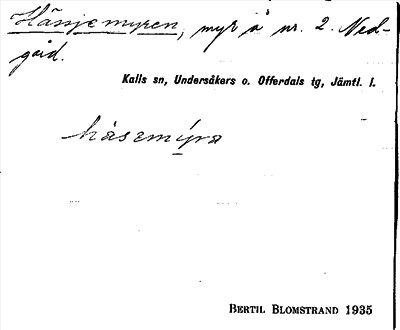 Hänjemyren, myr å nr. 2. Ned-
gård.
Kalls sn, Undersåkers o. Offerdals tg, Jämtl. l.
BERTIL BLOMSTRAND 1935